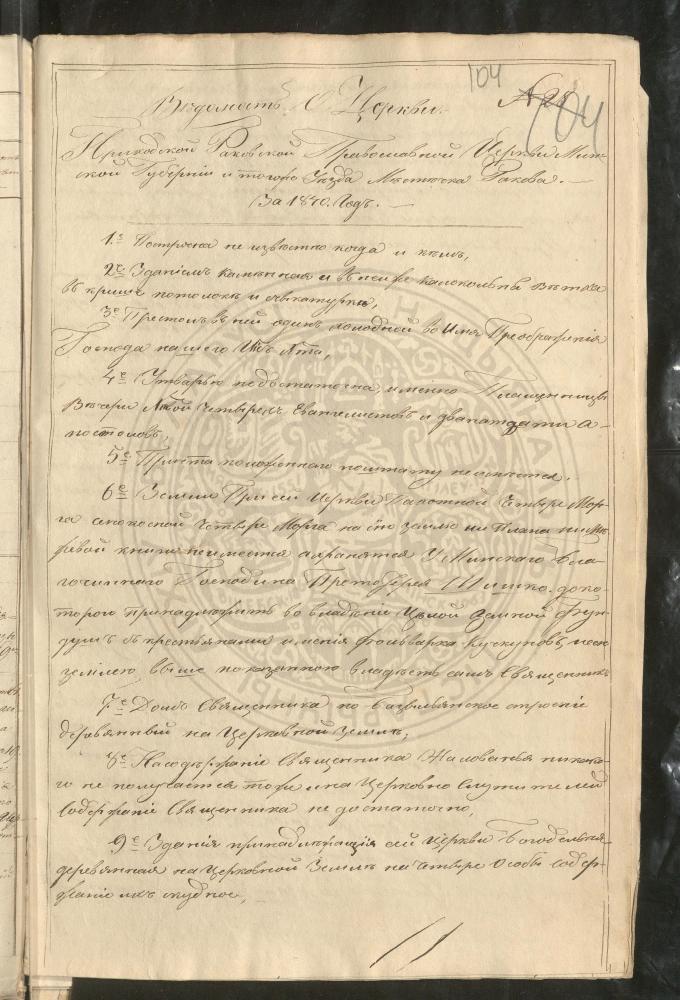 104
Вѣдомость О Церкви.
104
Приходской Раковской Православной Церкви Мин-
ской Губерніи и тогоже Уѣзда Мѣстечка Ракова. —
За 1840. Годъ. —
1е Построена не извѣстно когда и кѣмъ,
2е Зданіемъ каменная и въ ней колокольни ветха
въ крыше потолокъ и
3е Престолъ въ ней одинъ холодной во Имя Преображенія
Господа нашего Іисъ Хта,
4е Утварью недостаточна, именно Плащеницы
Вечери Четырехъ Евангелистовъ и дванатцати А-
постоловъ,
5е Причта положеннаго по штату не
6е Земли При сей Церкви Пахотной Четыре Мор-
га сенокосной Четыре Морга на сію землю ни Плана ни Мѣ-
жевой книги не имеется а хранятся У Минскаго Бла-
гочиннаго Господина Протоіерея Шишко. до ко-
торого принадлежитъ во владѣніе Цѣлой Земной Фун-
душъ съ крестьянами имѣнія фольварка
землею выше показанною владѣетъ самъ Священникъ
7е Домъ Священника по строеніе
деревянный на Церковной Земли,
8е На содержаніе Священника Жалованья никако-
го не получается тоже и на Церковно Служителей
Содержаніе Священника не достаточно,
9е Зданія принадлежащія сей Церкви Богодельня
деревянная на Церковной Земли на Четыре Особы содер-
жаніе ихъ скудное,